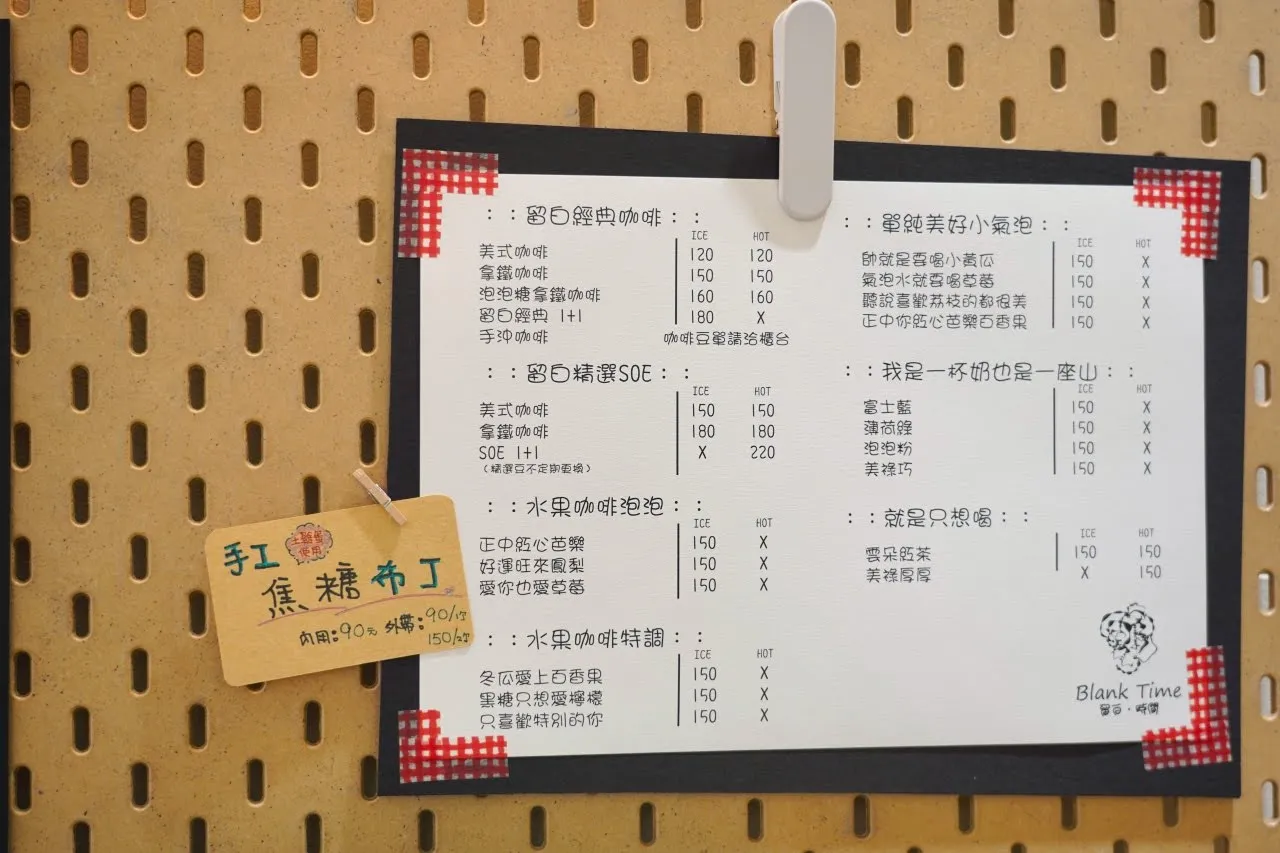 ：：留白經典咖啡：：
ICE HOT
美式咖啡 120 120
拿鐵咖啡 150 150
泡泡糖拿鐵咖啡 160 160
留白經典 1+1 180 X
手沖咖啡 咖啡豆單請洽櫃台
：：留白精選SOE：：
ICE HOT
美式咖啡 150 150
拿鐵咖啡 180 180
SOE 1+1 X 220
（精選豆不定期更換）
：：水果咖啡泡泡：：
ICE HOT
正中紅心芭樂 150 X
好運旺來鳳梨 150 X
愛你也愛草莓 150 X
：：水果咖啡特調：：
ICE HOT
冬瓜愛上百香果 150 X
黑糖只想愛檸檬 150 X
只喜歡特別的你 150 X
：：單純美好小氣泡：：
ICE HOT
帥就是要喝小黃瓜 150 X
氣泡水就要喝草莓 150 X
聽說喜歡荔枝的都很美 150 X
正中你紅心芭樂百香果 150 X
：：我是一杯奶也是一座山：：
ICE HOT
富士藍 150 X
薄荷綠 150 X
泡泡粉 150 X
美祿巧 150 X
：：就是只想喝：：
ICE HOT
雲朵紅茶 150 150
美祿厚厚 X 150
Blank Time
留白・時間
手工
焦糖布丁
內用:90元 外帶:90/1個
150/2個